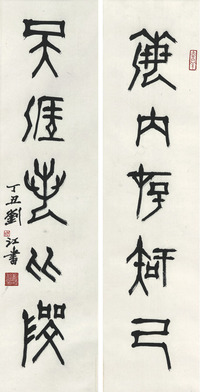 海内存知己
天涯若比邻
丁丑劉江書